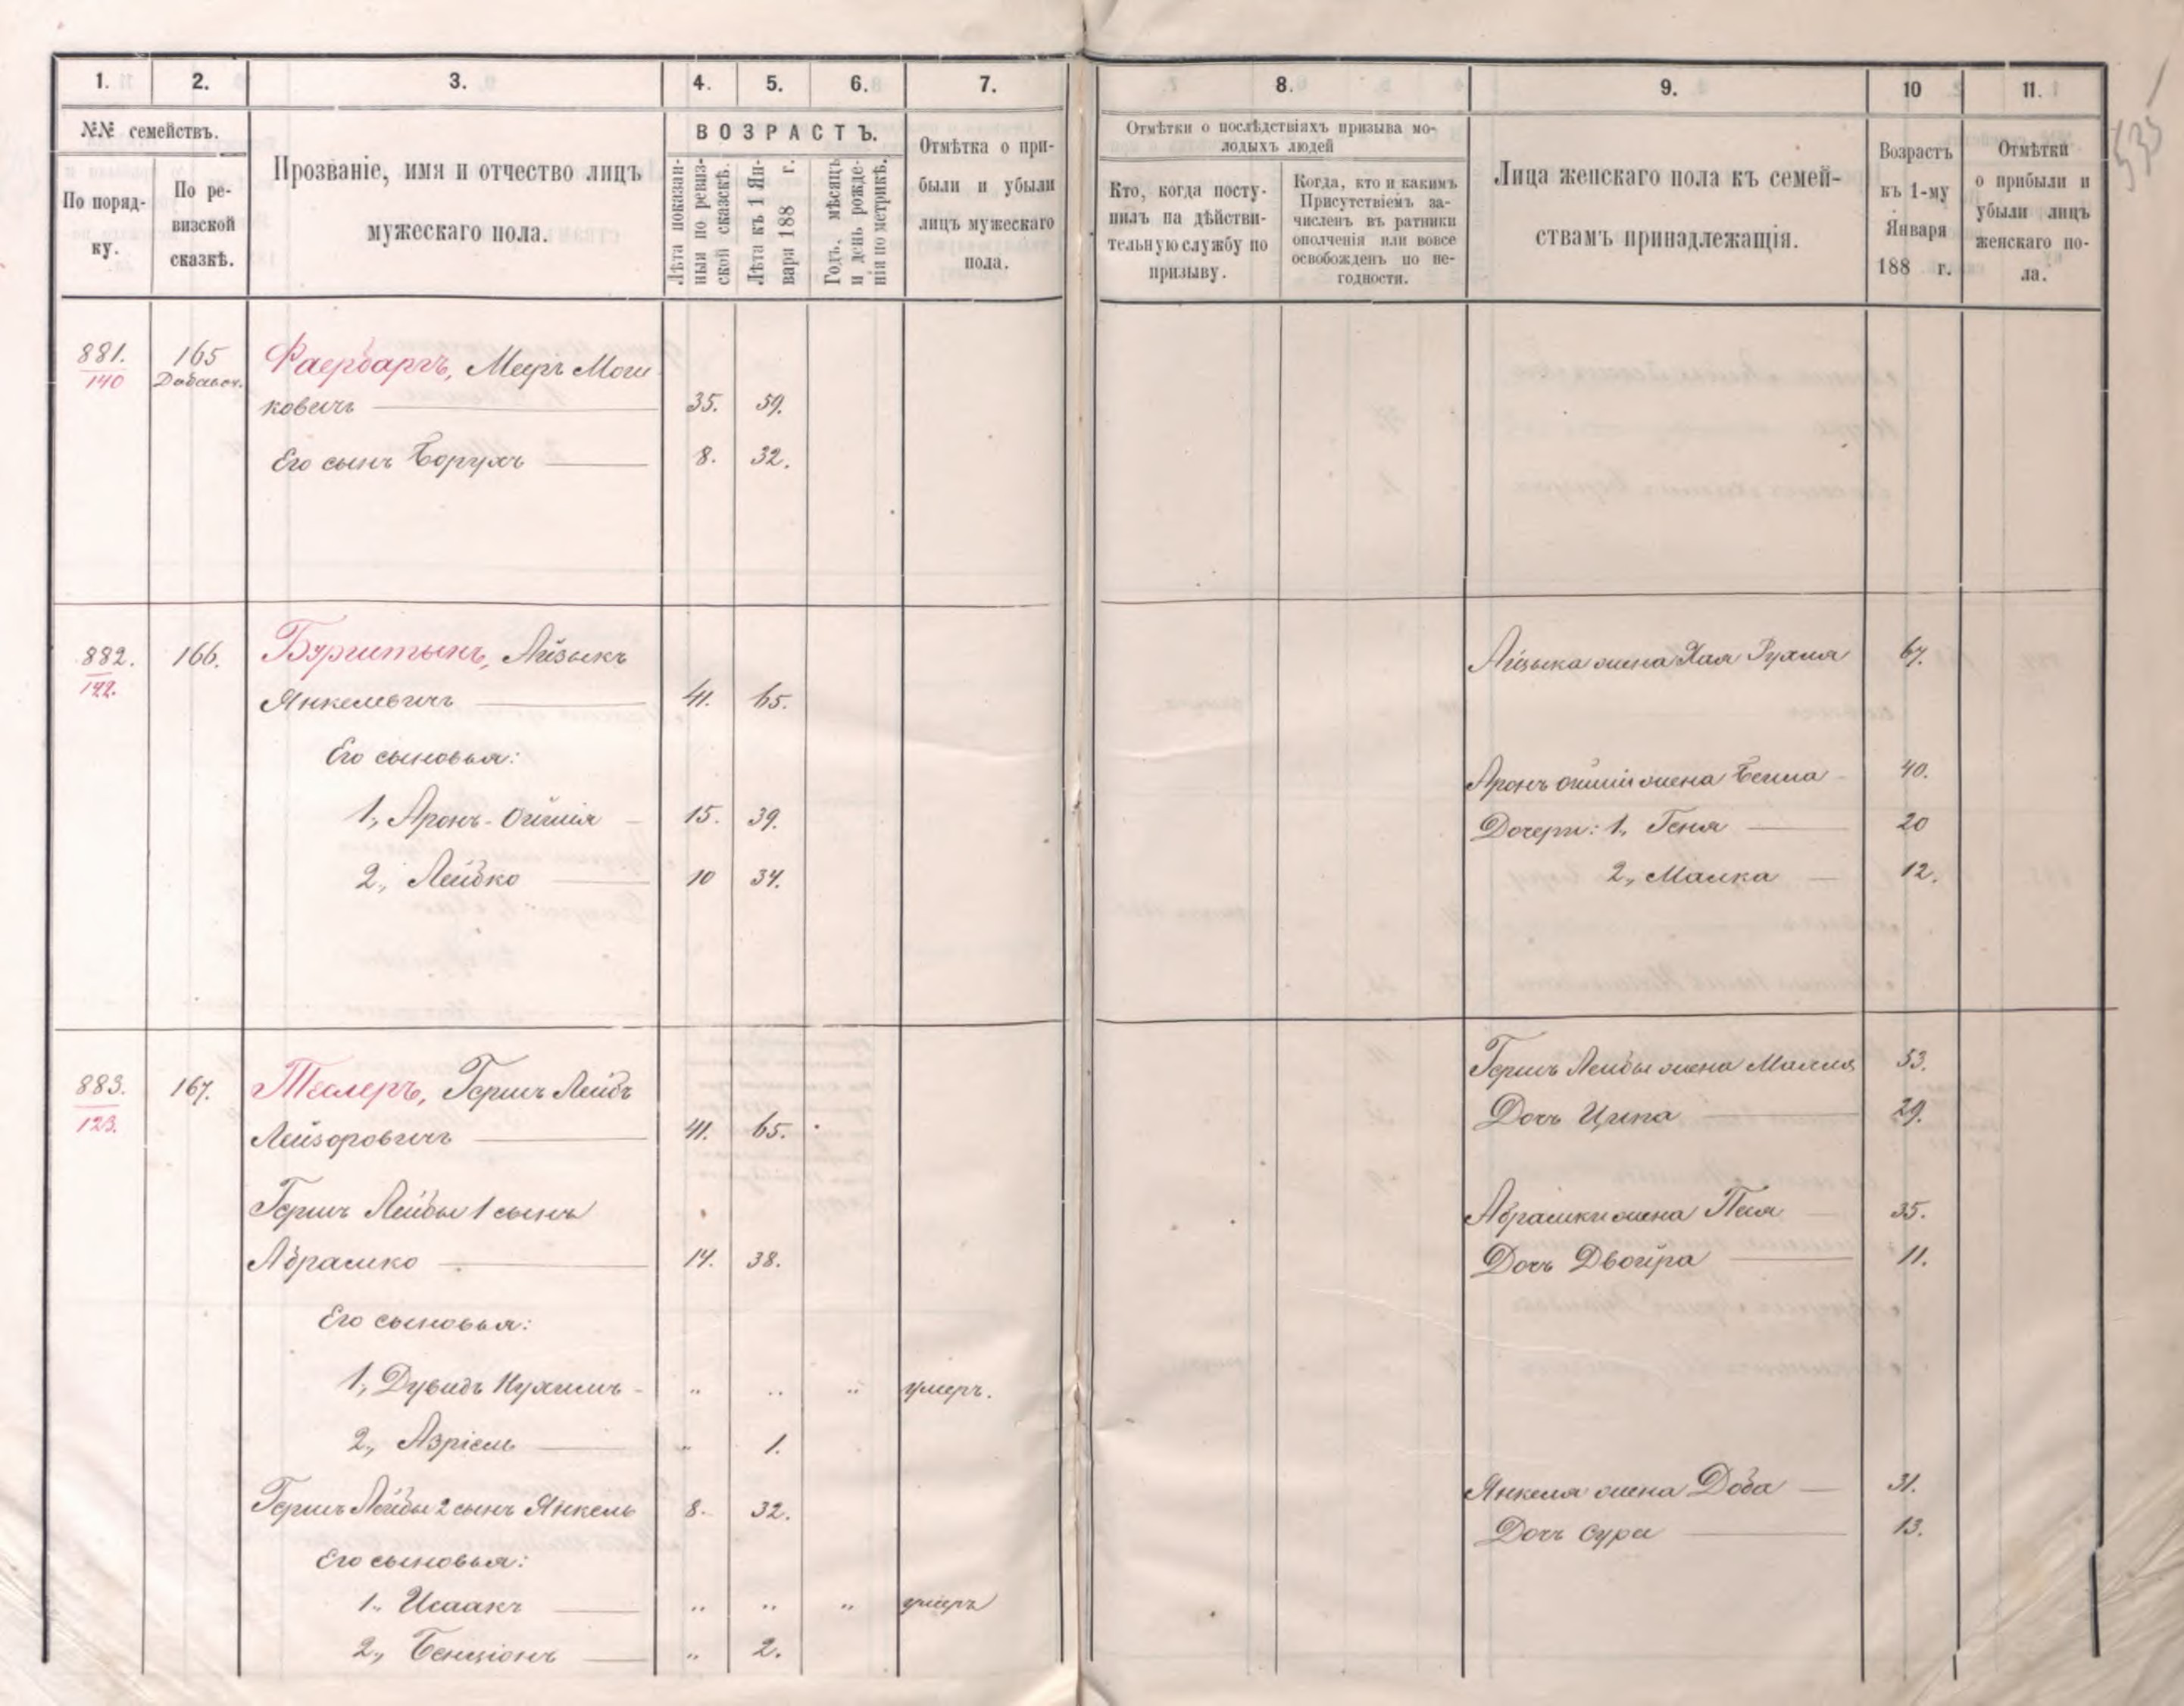 1. 2. 3. 4. 5. 6. 7. 8. 9. 10 11.
№№ семействъ.
По поряд-
ку.
По ре-
визской
сказкѣ.
Прозваніе, имя и отчество лицъ
мужескаго пола.
ВОЗРАСТЪ.
Лѣта показан-
ныя по ревиз-
ской сказкѣ.
Лѣта къ 1 Ян-
варя 188 г.
Годъ, мѣсяцъ
и день рожде-
нія по метрикѣ.
Отмѣтка о при-
были и убыли
лицъ мужескаго
пола.
Отмѣтки о послѣдствіяхъ призыва мо-
лодыхъ людей
Кто, когда посту-
пилъ на дѣйстви-
тельную службу по
призыву.
Когда, кто и какимъ
Присутствіемъ за-
численъ въ ратники
ополченія или вовсе
освобожденъ по не-
годности.
Лица женскаго пола къ семей-
ствамъ принадлежащія.
Возрастъ
къ 1-му
Января
188 г.
Отмѣтки
о прибыли и
убыли лицъ
женскаго по-
ла.
881. 165 Фаербаргъ, Мееръ Мош
140
ковичъ 35. 59.
Его сынъ Борухъ 8. 32.
882. 166. Бурштынъ, Айзыкъ
Айзыка жена Хая Рухля 67.
Янкелевичъ 41. 65.
Его сыновья:
Аронъ Ошіи жена Бейла 40.
1, Аронъ-Ошія 15. 39.
Дочери: 1, Геня 20
2, Лейбко 10 34.
2, Малка 12.
883. 167. Теслеръ, Гершъ Лейбъ
123.
Гершъ Лейбы жена Маля 53.
Лейзоровичъ 41. 65.
Дочь Ципа 29.
Гершъ Лейбы 1 сынъ
Абрамки жена Песя 35.
Абрамко 14. 38.
Дочь Двойра 11.
Его сыновья:
1, Дувидъ Нухимъ „ „ „ умеръ.
2, Азріель „ 1.
Янкеля жена Доба 31.
Гершъ Лейбы 2 сынъ Янкель 8. 32.
Дочь Сура 13.
Его сыновья:
1, Исаакъ „ „ „ умеръ
2, Бенціонъ „ 2.